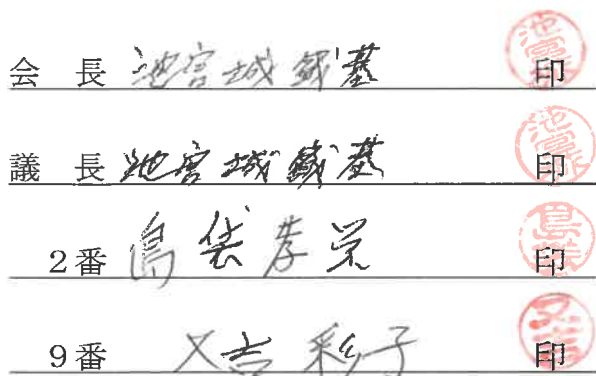 会 長 池宮城 鐵基 印
議 長 池宮城 鐵基 印
2番 島袋 孝栄 印
9番 又吉 彩子 印